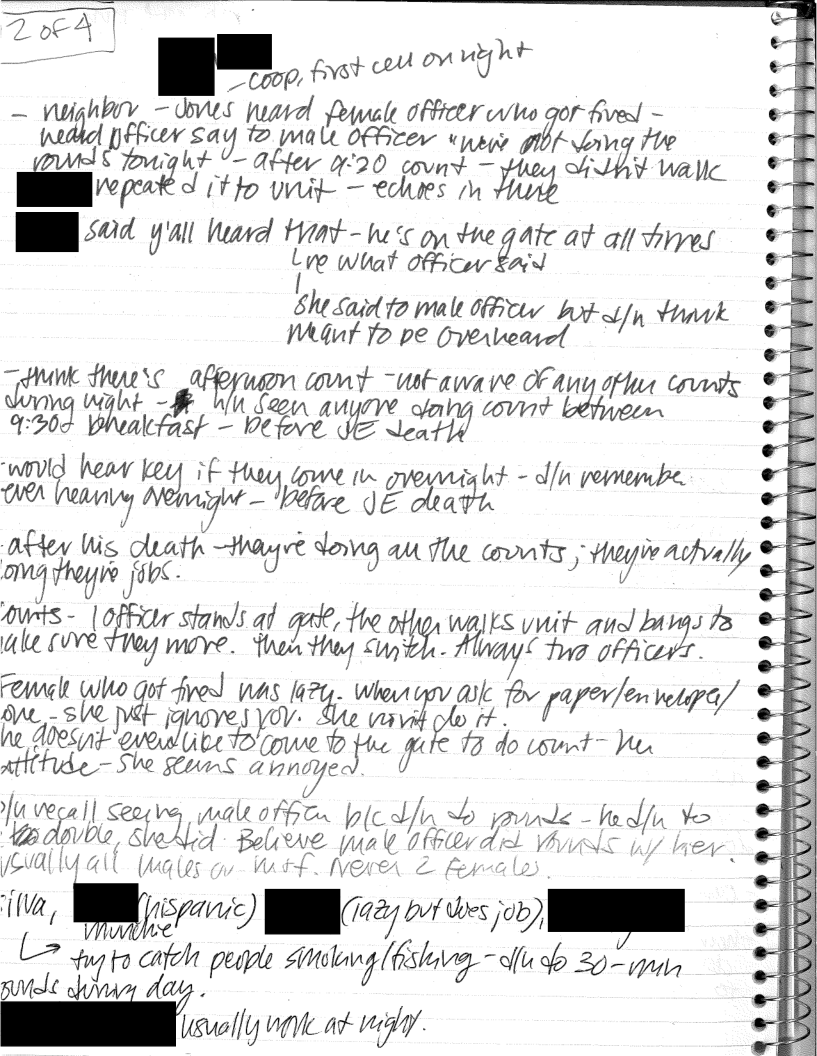 2 of 4
- coop, first cell on right
- neighbor - Jones heard female officer who got fired -
heard officer say to male officer "we're not doing the
rounds tonight - after 9:20 count - they didn't walk
repeated it to unit - echoes in there
said y'all heard that - he's on the gate at all times
re what officer said
she said to male officer but d/n think
meant to be overheard
- think there's afternoon count - not aware of any other counts
during night - h/n seen anyone doing count between
9:30 & breakfast - before JE death
- would hear key if they come in overnight - d/n remember
ever hearing overnight - before JE death
- after his death - they're doing all the counts; they're actually
oing they're jobs.
ounts - 1 officer stands at gate, the other walks unit and bangs to
ake sure they move. Then they switch. Always two officers.
Female who got fired was lazy. When you ask for paper/envelope/
one - she just ignores you. She won't do it.
he doesn't even like to come to the gate to do count - her
attitude - she seems annoyed.
d/n recall seeing male officer b/c d/n do rounds - he d/n do
double, she did. Believe male officer did rounds w/ her.
usually all males or m+f. Never 2 females.
ilva, (hispanic) (lazy but does job),
try to catch people smoking/fishing - d/n do 30-min
ounds during day.
usually work at night.